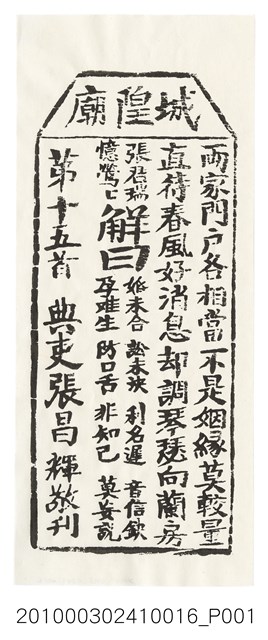 城隍廟
兩家門戶各相當不是姻緣莫較量
直待春風好消息却調琴瑟向蘭房
張君瑞
憶鶯々
解曰
婚未合 訟未決 利名遲 音信欽
孕難生 防口舌 非知己 莫妄說
第十五首 典吏張昌輝敬刊
201000302410016_P001